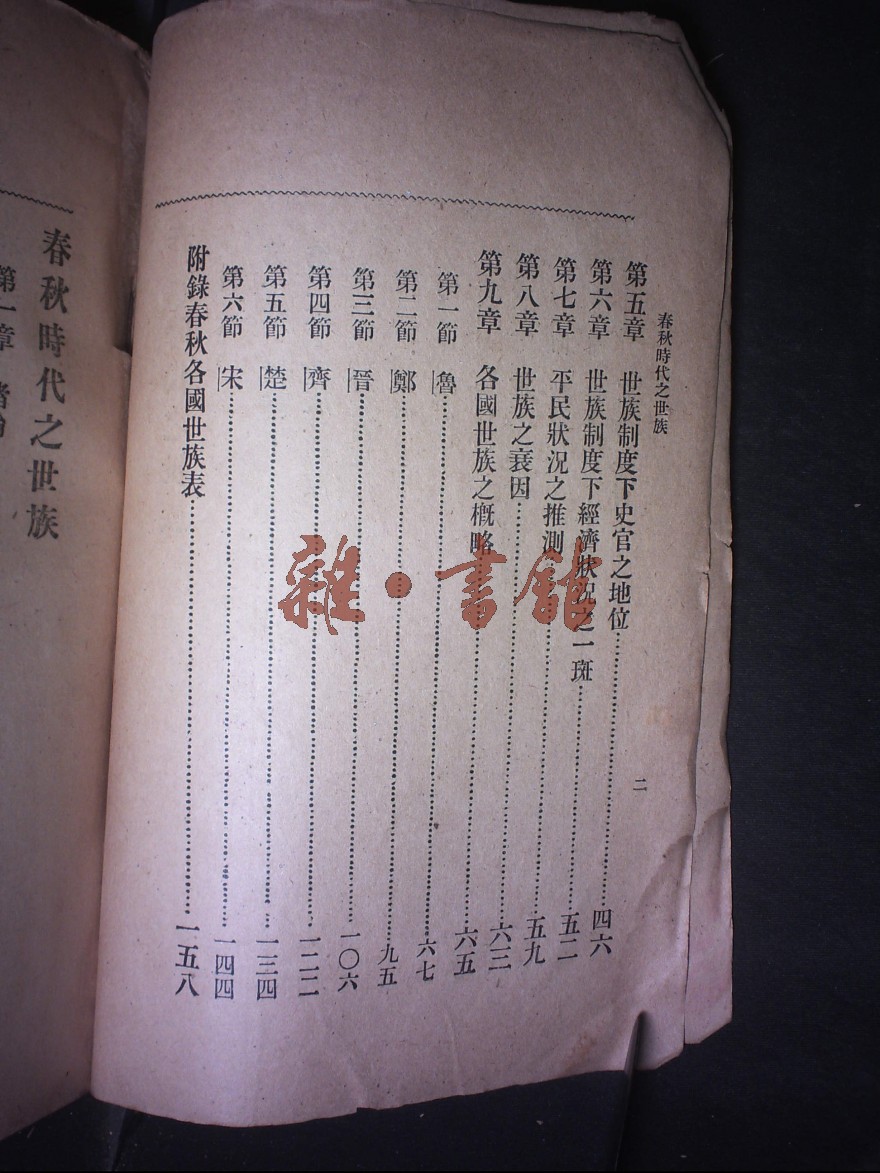 春秋時代之世族
二
第五章 世族制度下史官之地位……四六
第六章 世族制度下經濟狀況之一斑……五二
第七章 平民狀況之推測……五九
第八章 世族之衰因……六三
第九章 各國世族之概略……六五
第一節 魯……六七
第二節 鄭……九五
第三節 晉……一〇六
第四節 齊……一二二
第五節 楚……一三四
第六節 宋……一四四
附錄春秋各國世族表……一五八
春秋時代之世族
第一章
雜·書館